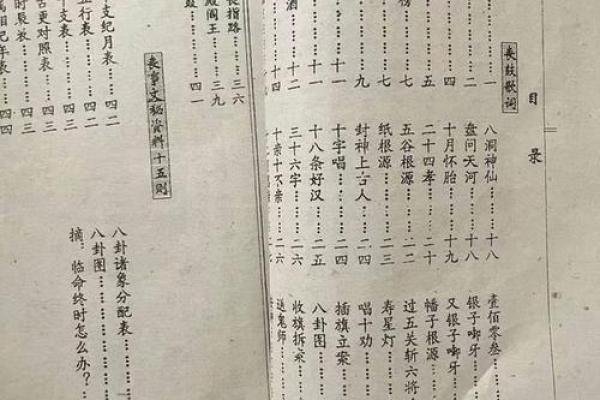 目录
丧鼓歌词
……一
……二
……四
……五
……七
……七
……九
……十一
……十一
酒……十二
……十四
八洞神仙……十八
盘问天河……十八
十月怀胎……十九
二十四孝……二十
五谷根源……二二
纸根源……二三
封神上古人……二四
十字唱……二四
十八条好汉……二五
三十六字……二六
十亲十不亲……二六
壹佰零叁……
银子啷牙……
又银子啷牙……
幡子根源……
过五关斩六将……
寿星灯……
唱十劝……
插旗立案……
八卦图……
收旗拆寨……
送鬼师……
指路……三六
殿阎王……三九
鼓……四一
丧事文秘资料十五则
支纪月表……四二
行表……四二
支表……四二
更对照表……四三
时辰表……四三
属相纪年表……四四
八卦诸象分配表……
八卦图……
摘：临命终时怎么办？……